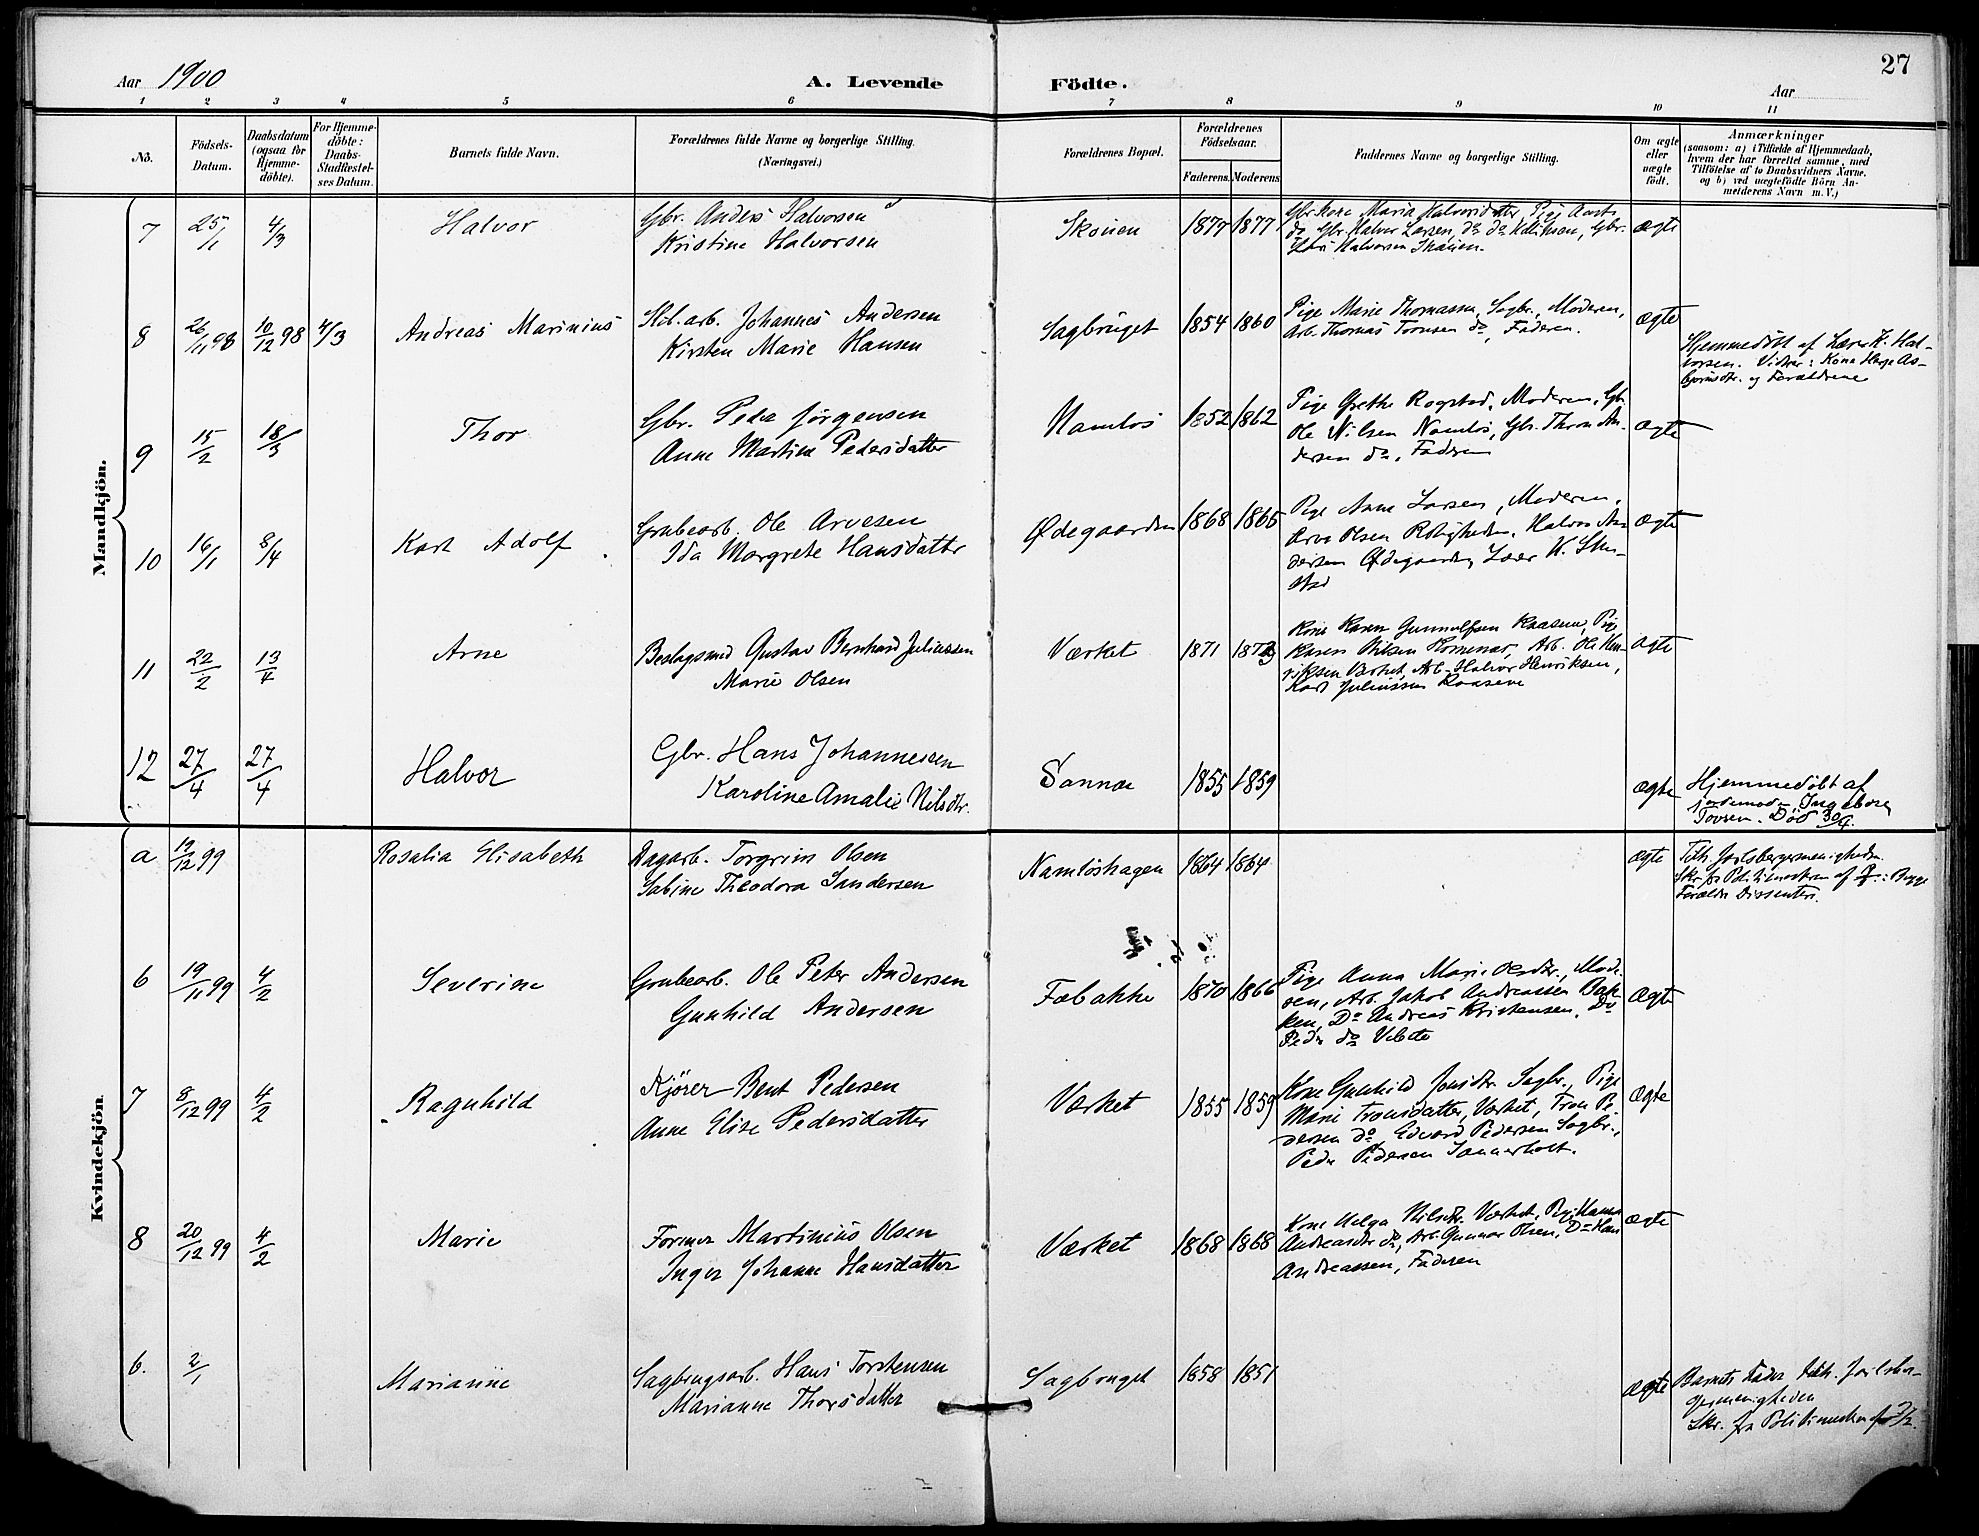 27
Aar 1900
A. Levende Födte.
Aar
1 2 3 4 5 6 7 8 9 10 11
No.
Födsels-Datum.
Daabsdatum (ogsaa for Hjemme-döbte).
For Hjemme-döbte: Daabs-Stadfæstel-ses Datum.
Barnets fulde Navn.
Forældrenes fulde Navne og borgerlige Stilling.
(Næringsvei.)
Forældrenes Bopæl.
Forældrenes Födselsaar.
Faderens. Moderens.
Faddernes Navne og borgerlige Stilling.
Om ægte eller uægte födt.
Anmærkninger
(saasom: a) i Tilfælde af Hjemmedaab,
hvem der har forrettet samme, med
Tilföielse af to Daabsvidners Navne,
og b) ved uægtefödte Börn An-
melderens Navn m. V.)
Mandkjön.
7 25/1 4/3 Halvor
Gbr. Anders Halvorsen
Kristine Halvorsen
Skouen 1877 1877
Gbr.kone Maria Halvorsdatter, Pige
do Gbr. Halvor Larsen, do do Gbr.
Lars Halvorsen Skouen.
ægte
8 26/11 98 10/12 98 4/3 Andreas Marinius
Sk.arb. Johannes Andersen
Kirsten Marie Hansen
Sagbruget 1854 1860
Pige Marie Thomassen, Sagbr., Moderen,
Arb. Thomas Tronsen do, Faderen.
ægte
Hjemmedöbt af Lærer K. Hal-
vorsen. Vidner: Kone As-
björnsdtr. og Forældrene
9 15/2 18/3 Thor
Gbr. Peder Jörgensen
Anne Martine Pedersdatter
Namlös 1852 1862
Pige Grethe Rogstad, Moderen, Gbr.
Ole Nilsen Namlös, Gbr. Thron An-
dersen do, Faderen
ægte
10 16/1 8/4 Karl Adolf
Grubearb. Ole Arvesen
Ida Margrete Hansdatter
Ødegaarden 1868 1865
Pige Anna Larsen, Moderen,
Arve Olsen Roligheden, Halvor An-
dersen Ødegaarden, Lærer K.
ægte
11 22/2 13/4 Arne
Beslagsmed Gustav Bernhard Juliussen
Marie Olsen
Værket 1871 1873
Kone Karen Gunnulfsen Kaasene, Pige
Karen Nilsen Arb. Ole Hen-
riksen Værket, Arb. Halvor Henriksen,
Karl Juliussen Kaasene
ægte
12 27/4 27/4 Halvor
Gbr. Hans Johannessen
Karoline Amalie Nilsdtr.
Sannæs 1855 1859
ægte
Hjemmedöbt af
jordemoder Ingeborg
Tovsen. Död 30/4.
Kvindekjön.
a 19/12 99 Rosalia Elisabeth
Dagarb. Torgrim Olsen
Sabine Theodora Sandersen
Namlöshagen 1864 1864
ægte
Tilh. Jarlsbergmenigheden.
Skr. fra Politimesteren af Begge
Forældre Dissentere.
6 19/11 99 4/2 Severine
Grubearb. Ole Peter Andersen
Gunhild Andersen
Fæbakke 1870 1866
Pige Anna Marie Olsdtr., Mode-
ren, Arb. Jakob Andreassen Bak-
ken, Do Andreas Kristensen, Do
Peder do
ægte
7 8/12 99 4/2 Ragnhild
Kjörer Bent Pedersen
Anne Elise Pedersdatter
Værket 1855 1859
Kone Gunhild Jonsdtr. Sagbr., Pige
Marie Tronsdatter, Værket, Tron Pe-
dersen do, Edvard Pedersen Sagbr.,
Peder Pedersen Sannerholt.
ægte
8 20/12 99 4/2 Marie
Former Martinius Olsen
Inger Johanne Hansdatter
Værket 1868 1868
Kone Helga Nilsdtr. Værket, Pige Hanna
Andreasdtr do, Arb. Gunnar Olsen, Do Hans
Andreassen, Faderen
ægte
6. 2/1 Marianne
Sagbrugsarb. Hans Torstensen
Marianne Thorsdatter
Sagbruget 1858 1851
ægte
Barnets Fader tilh. Jarlsber-
gmenigheden
Skr. fra Politimesteren